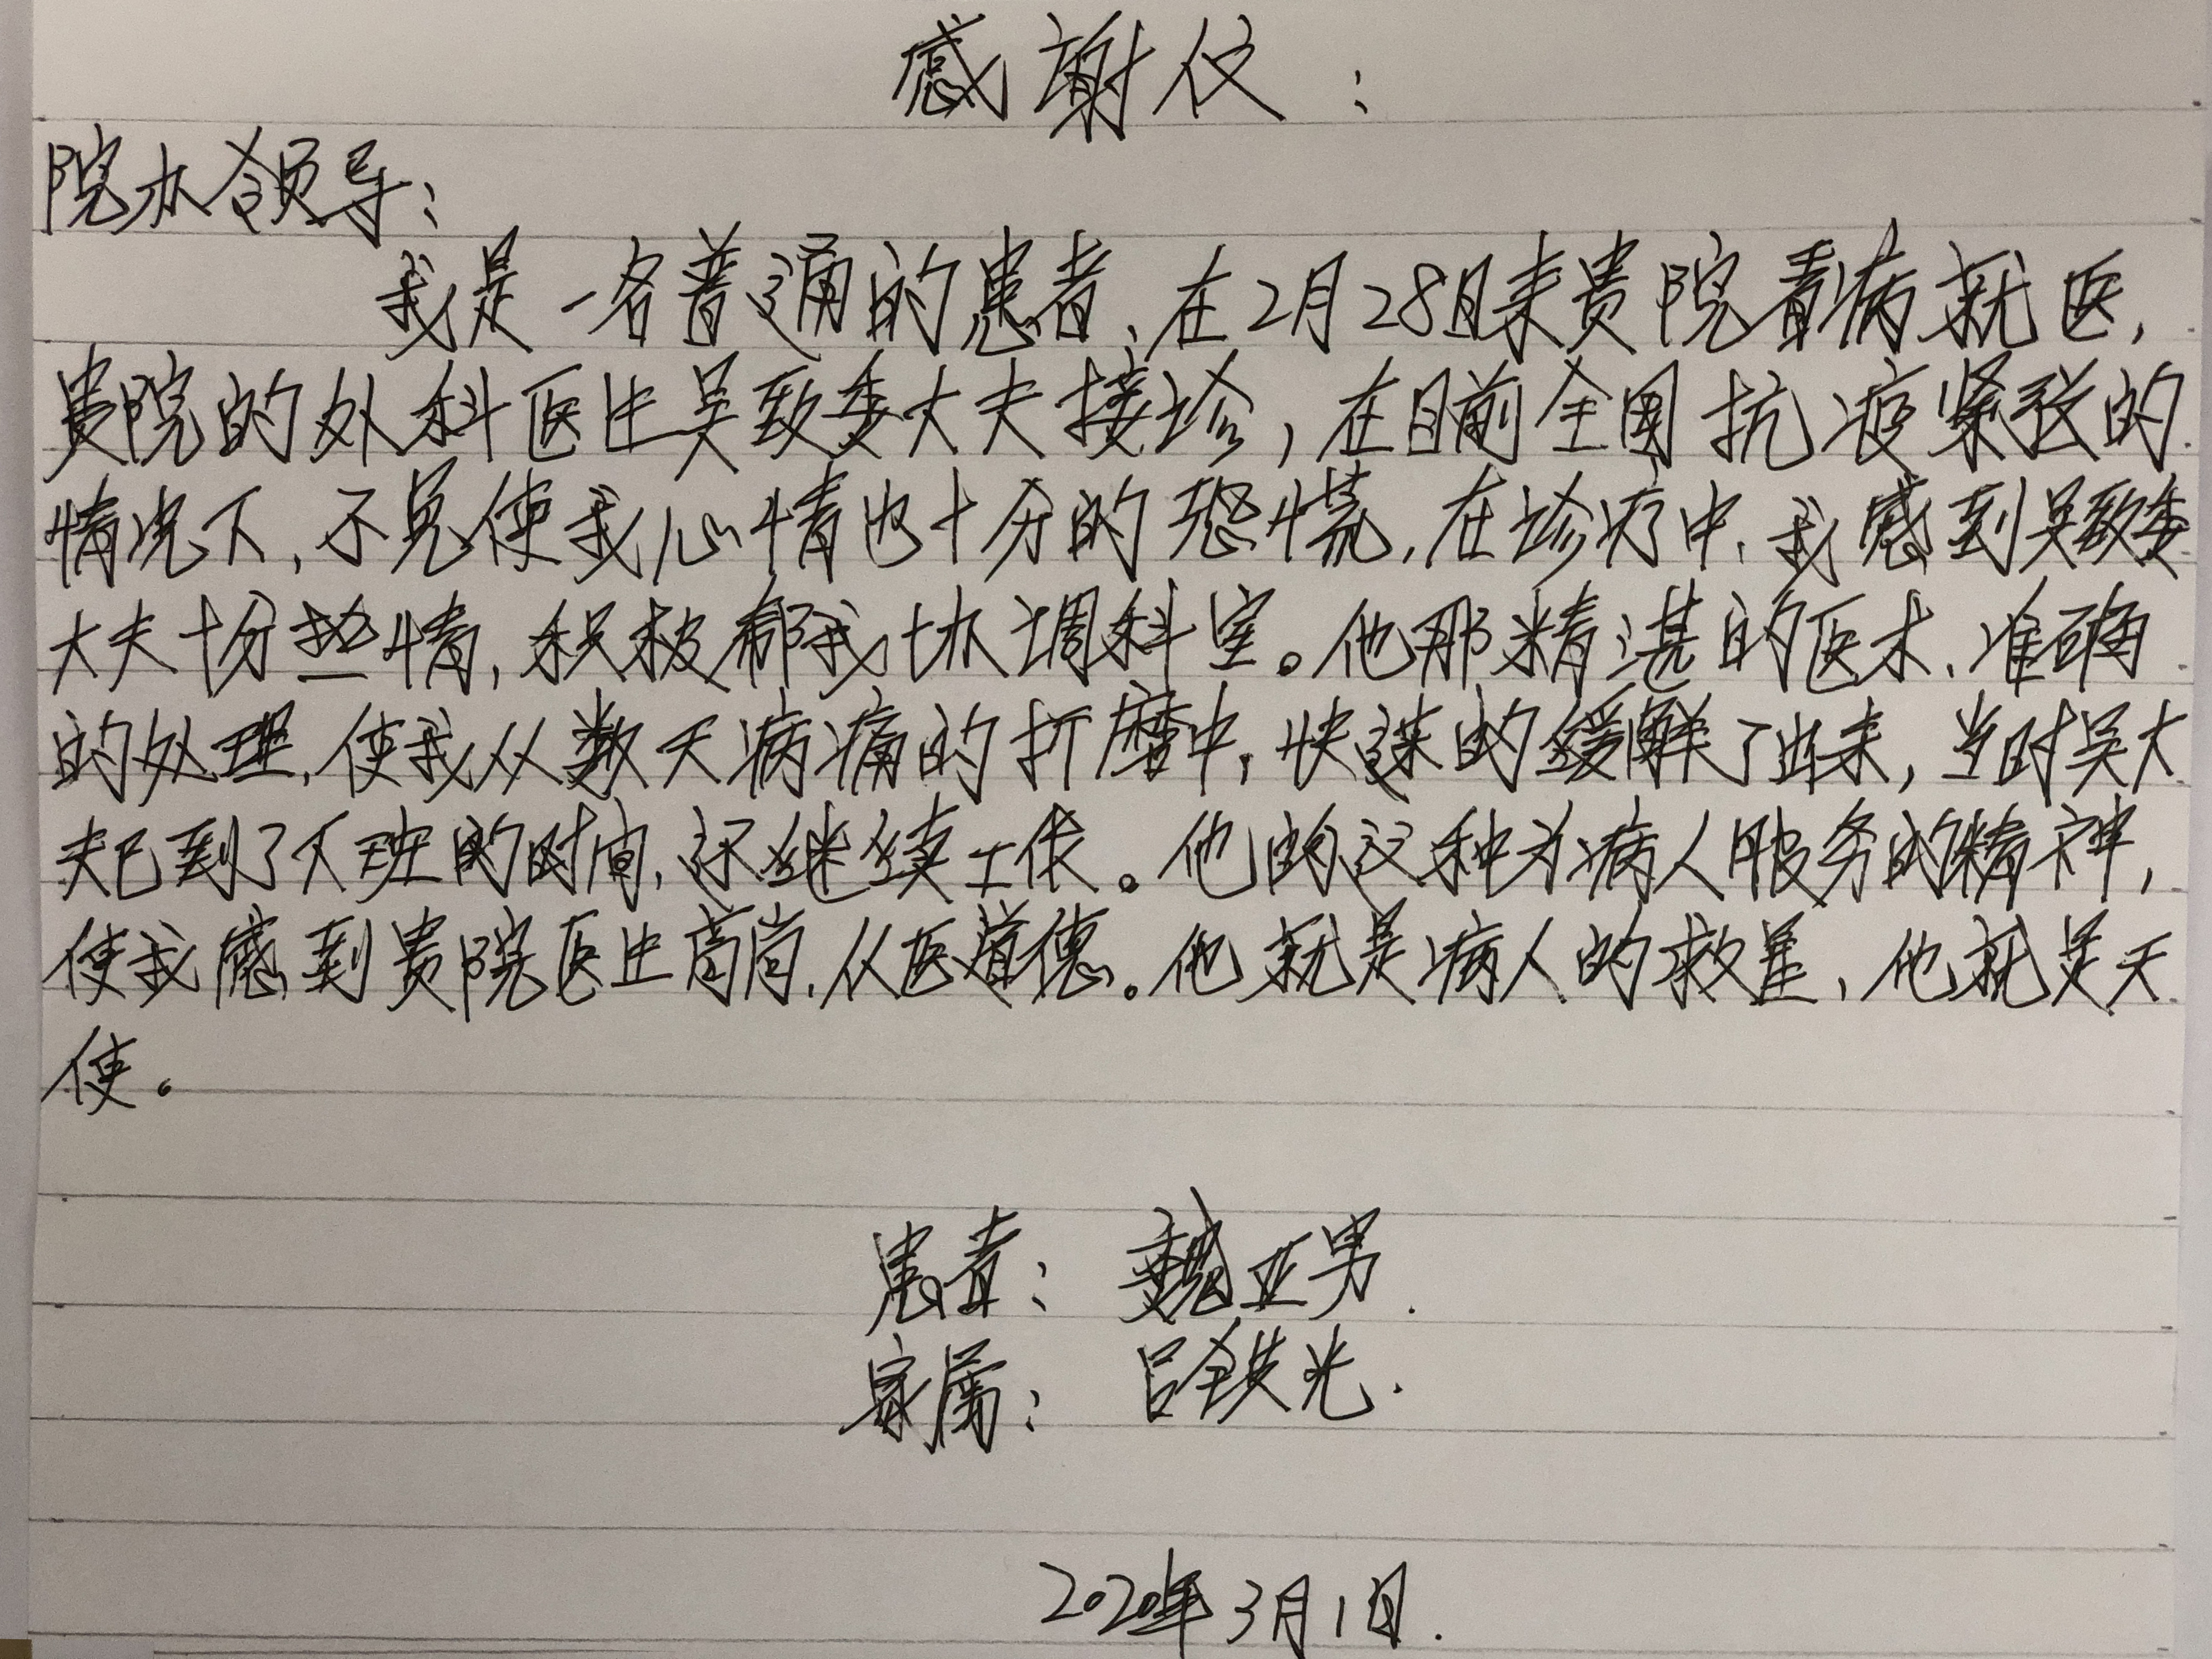 感谢仪：
院办领导：
我是一名普通的患者、在2月28日来贵院看病就医，
贵院的外科医生吴致委大夫接诊，在目前全国抗疫紧张的
情况下，不免使我心情也十分的恐慌，在诊疗中、我感到吴致委
大夫十分热情，积极帮我协调科室。他那精湛的医术、准确
的处理，使我从数天病痛的折磨中，快速的缓解了出来，当时吴大
夫已到了下班的时间，还继续工作。他的这种为病人服务的精神，
使我感到贵院医生高尚，从医道德。他就是病人的救星、他就是天
使。
患者：魏亚男.
家属：吕铁光.
2020年3月1日.